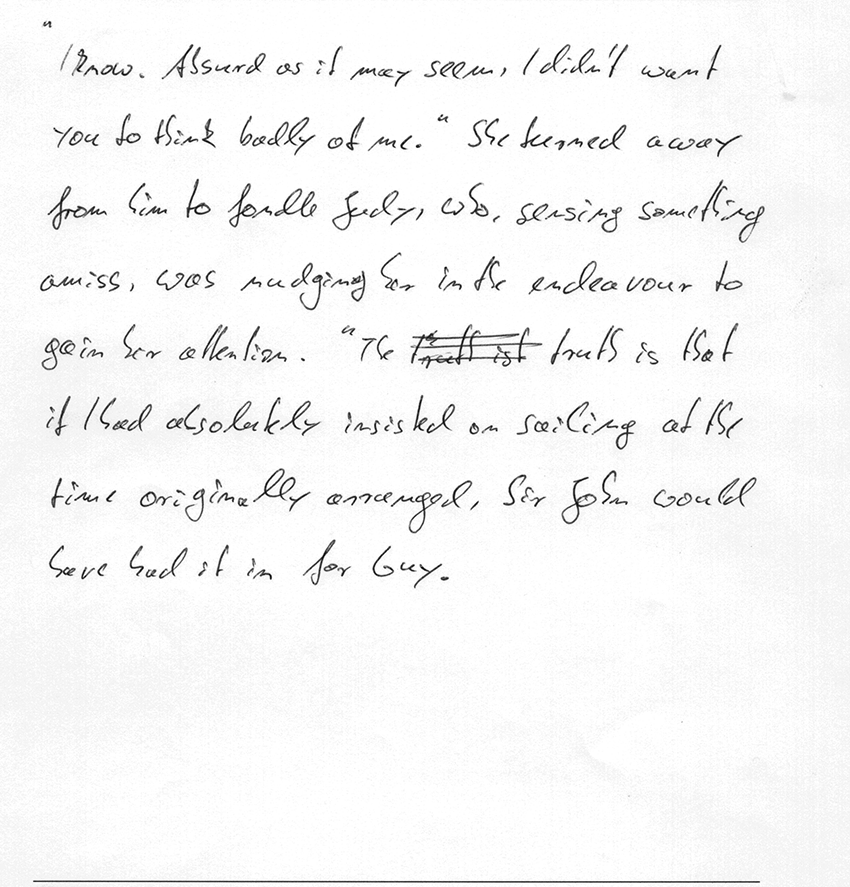 "
I know. Absurd as it may seem, I didn't want
you to think badly of me." She turned away
from him to fondle Judy, who, sensing something
amiss, was nudging her in the endeavour to
gain her attention. "The truth is that
if I had absolutely insisted on sailing at the
time originally arranged, Sir John would
have had it in for Guy.